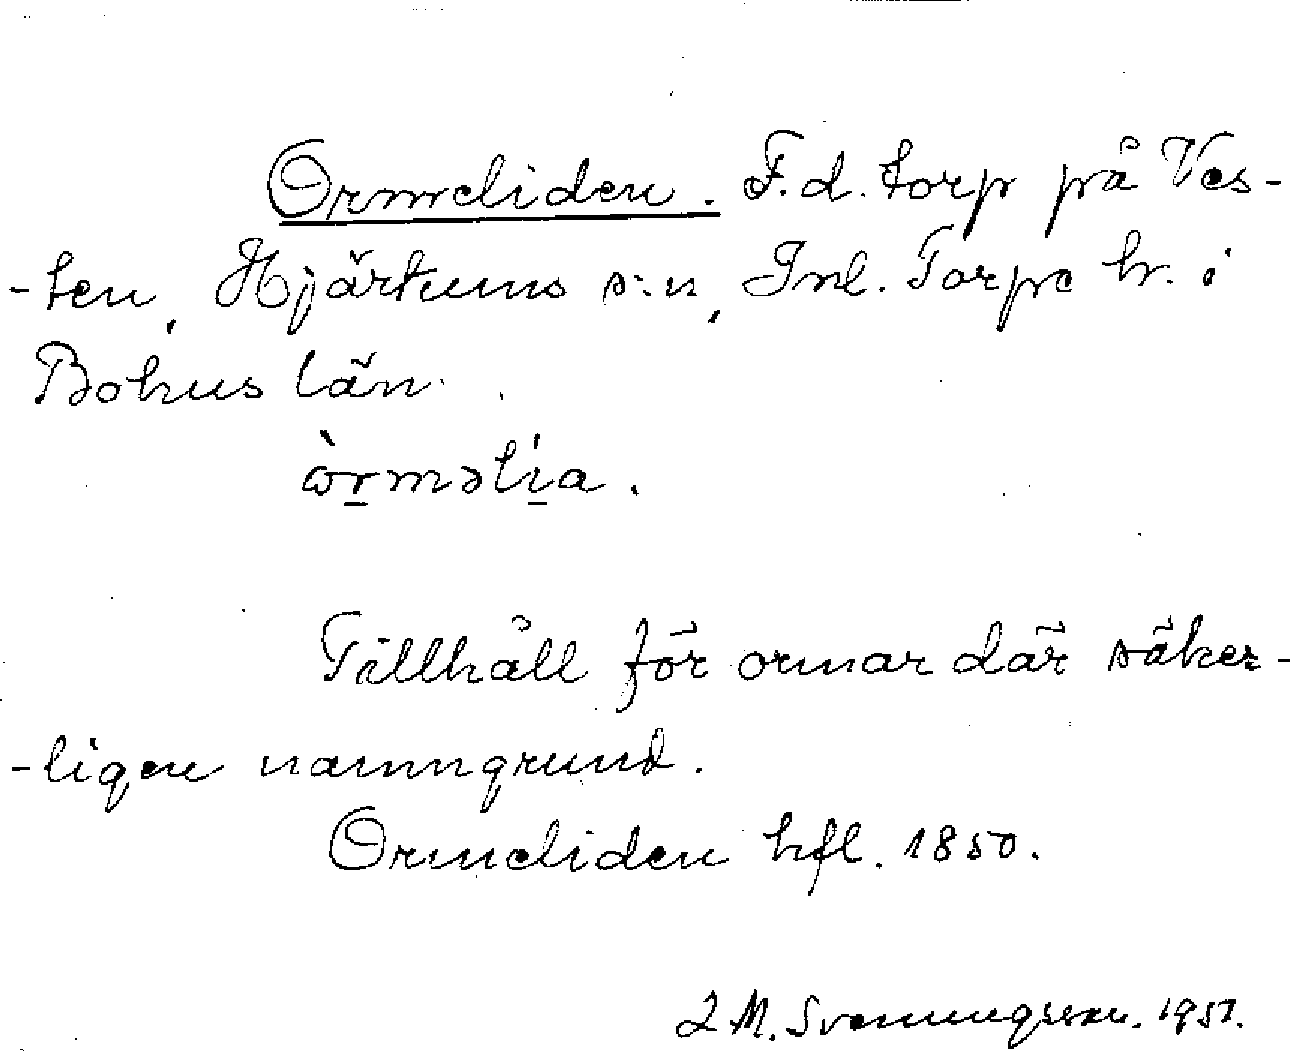 Ormeliden. F.d. torp på Ves-
-ten, Hjärtums s:n, Inl. Torpe hr. i
Bohus län.
òrməlia.
Tillhåll för ormar där säker-
-ligen namngrund.
Ormeliden hfl. 1850.
M. Svenungsson. 1951.